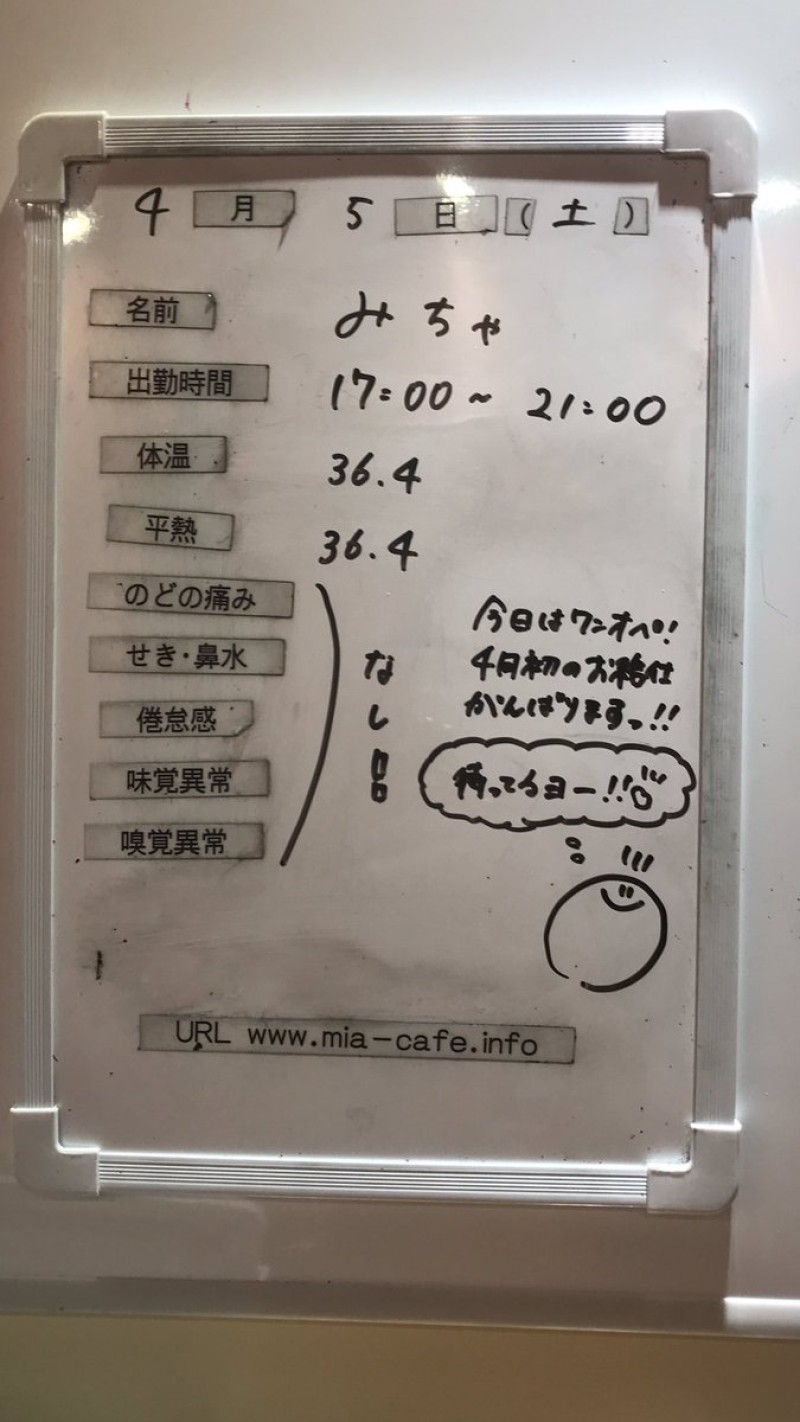 4月 5日(土)
名前 みちゃ
出勤時間 17:00~21:00
体温 36.4
平熱 36.4
のどの痛み
せき・鼻水
倦怠感
味覚異常
嗅覚異常
なし!!
今日はワンオペ!
4月初のお給仕
がんばりますっ!!
待ってるヨー!!
URL www.mia-cafe.info